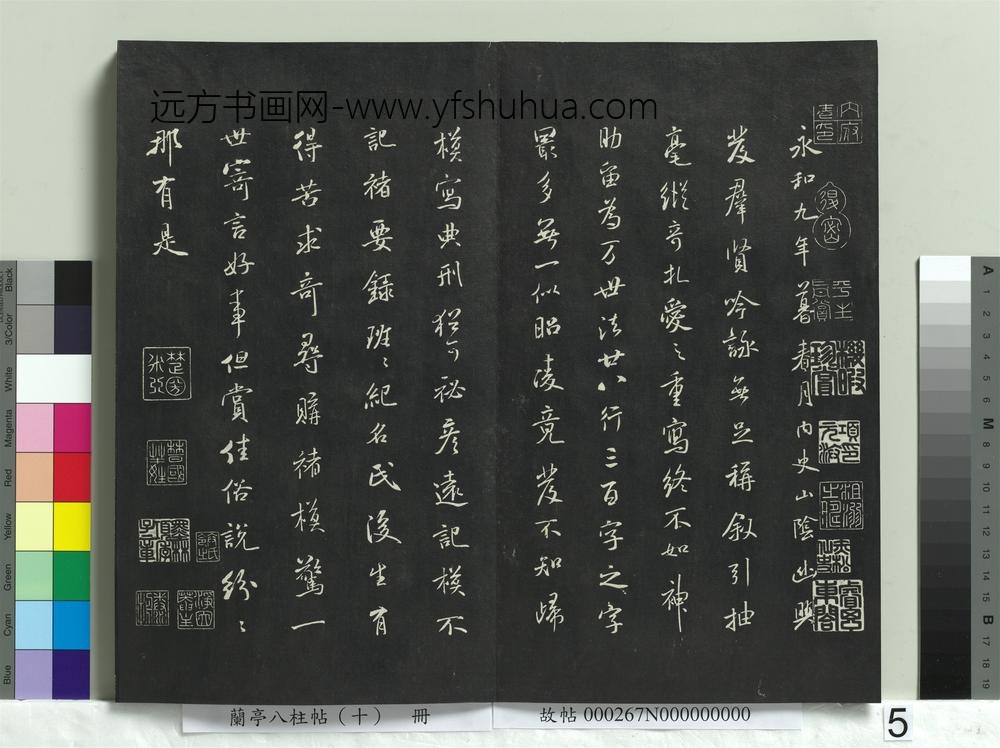 远方书画网-www.yfshuhua.com
永和九年暮春月內史山陰幽興
發羣賢吟詠無足稱叙引抽
毫縱奇札愛之重寫終不如神
助留為万世法廿八行三百字之字
最多無一似昭陵竟發不知歸
模寫典刑猶可祕彥遠記模不
記褚要錄班班紀名氏後生有
得苦求奇尋購褚模驚一
世寄言好事但賞佳俗說紛紛
那有是
蘭亭八柱帖（十） 冊
故帖 000267N000000000
5
Black
3/Color
White
Magenta
Red
Yellow
Green
Cyan
Blue
A
1
2
3
4
5
6
M
8
9
10
11
12
13
14
15
B
17
18
19